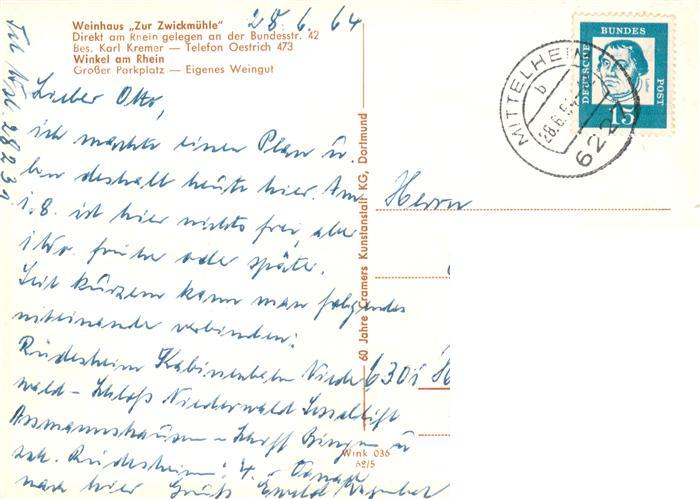 Weinhaus „Zur Zwickmühle“
Direkt am Rhein gelegen an der Bundesstr. 42
Bes. Karl Kremer — Telefon Oestrich 473
Winkel am Rhein
Großer Parkplatz — Eigenes Weingut
28.6.64
Lieber Otto,
ich machte einen Plan u.
bin deshalb heute hier. Am
1.8. ist hier nichts frei, aber
1 Wo. früher oder später.
Seit kurzem kann man folgendes
miteinander verbinden:
Rüdesheim Kabinenbahn Nieder
wald - Schloß Niederwald Sessellift
Assmannshausen - Schiff Bingen u
zck. Rüdesheim: 4.-
nach hier Gruß Ewald
Tel
2823
60 Jahre Cramers Kunstanstalt KG, Dortmund
Wink 036
62/5
Herrn
6301
DEUTSCHE BUNDES POST
Luther
15
MITTELHEIM
b
28.6.64
6227